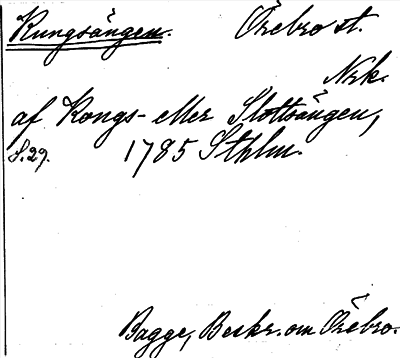 Kungsängen. Örebro st.
Nrk.
af Kongs- eller Slottsängen,
S. 29. 1785 Sthlm.
Bagge, Beskr. om Örebro.